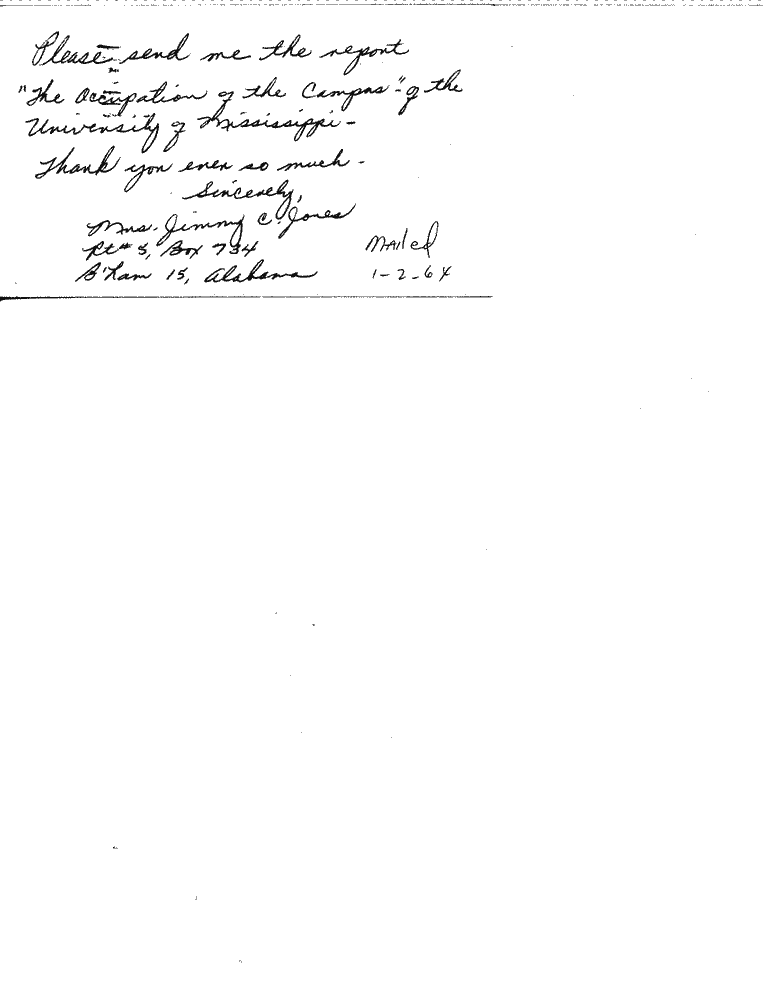 Please send me the report
"The Occupation of the Campus" of the
University of Mississippi -
Thank you ever so much -
Sincerely,
Mrs. Jimmy C. Jones
Rt# 5, Box 734
B'ham 15, Alabama
Mailed
1-2-64